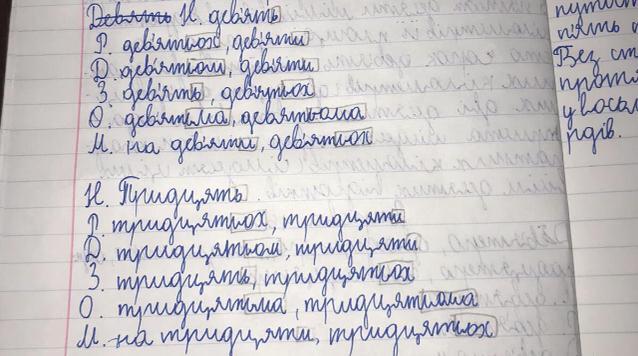 Девять Н. дев'ять
Р. дев'ятьох, дев'яти
Д. дев'ятьом, дев'яти
З. дев'ять, дев'ятьох
О. дев'ятьма, дев'ятьома
М. на дев'яти, дев'ятьох
Н. Тридцять
Р. тридцятьох, тридцяти
Д. тридцятьом, тридцяти
З. тридцять, тридцятьох
О. тридцятьма, тридцятьома
М. на тридцяти, тридцятьох
п'ять
Без ст
протя
у восьм
рдів.